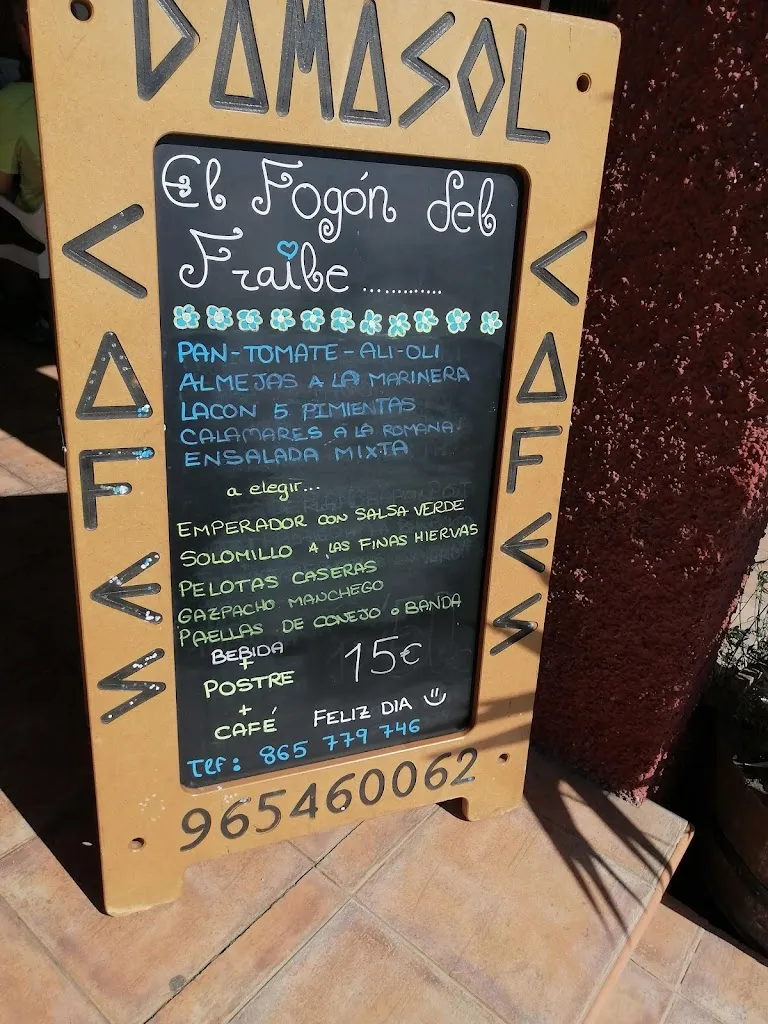 DAMASOL
CAFES
CAFES
El Fogón del
Fraibe ............
PAN-TOMATE-ALI-OLI
ALMEJAS A LA MARINERA
LACON 5 PIMIENTAS
CALAMARES A LA ROMANA
ENSALADA MIXTA
a elegir...
EMPERADOR CON SALSA VERDE
SOLOMILLO A LAS FINAS HIERVAS
PELOTAS CASERAS
GAZPACHO MANCHEGO
PAELLAS DE CONEJO o BANDA
BEBIDA
+
POSTRE
+
CAFÉ
15€
FELIZ DIA
TLF: 865 779 746
965460062